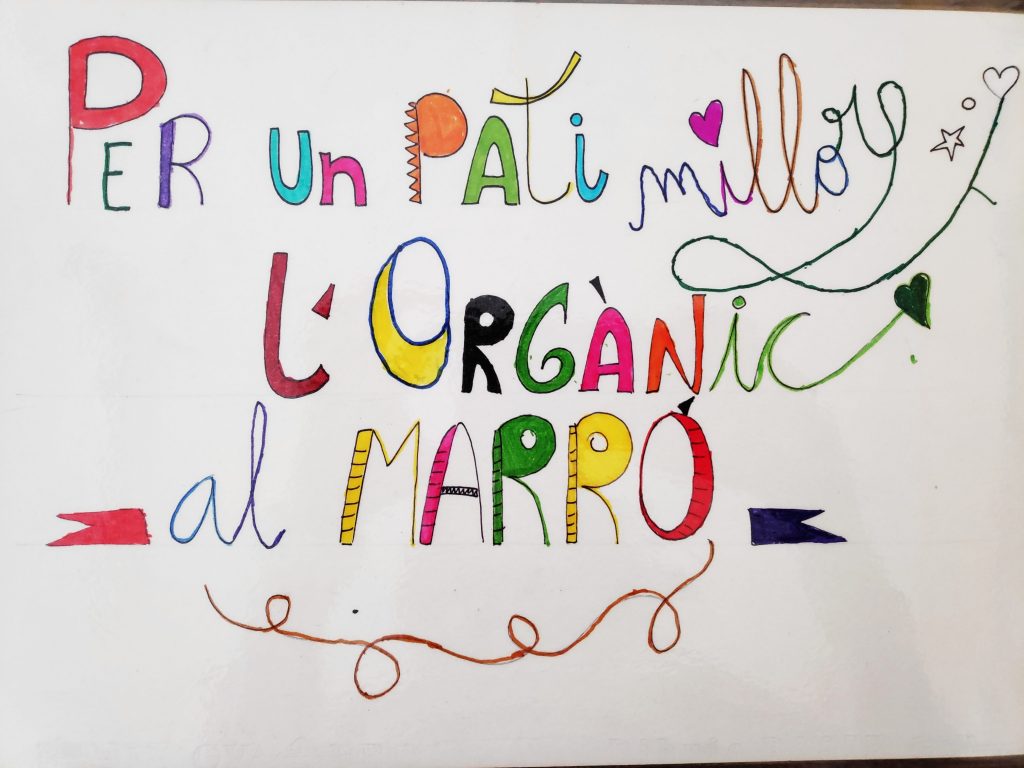 PER un PATi millor
L'ORGÀNic
al MARRÓ